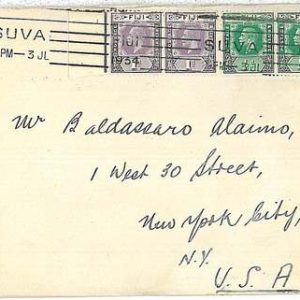 SUVA.
PM – 3 JL
1934
FIJI FIJI
SUVA
3 JL
Mr Baldassaro Alaimo,
1 West 30 Street,
New York City,
N.Y.
U.S.A